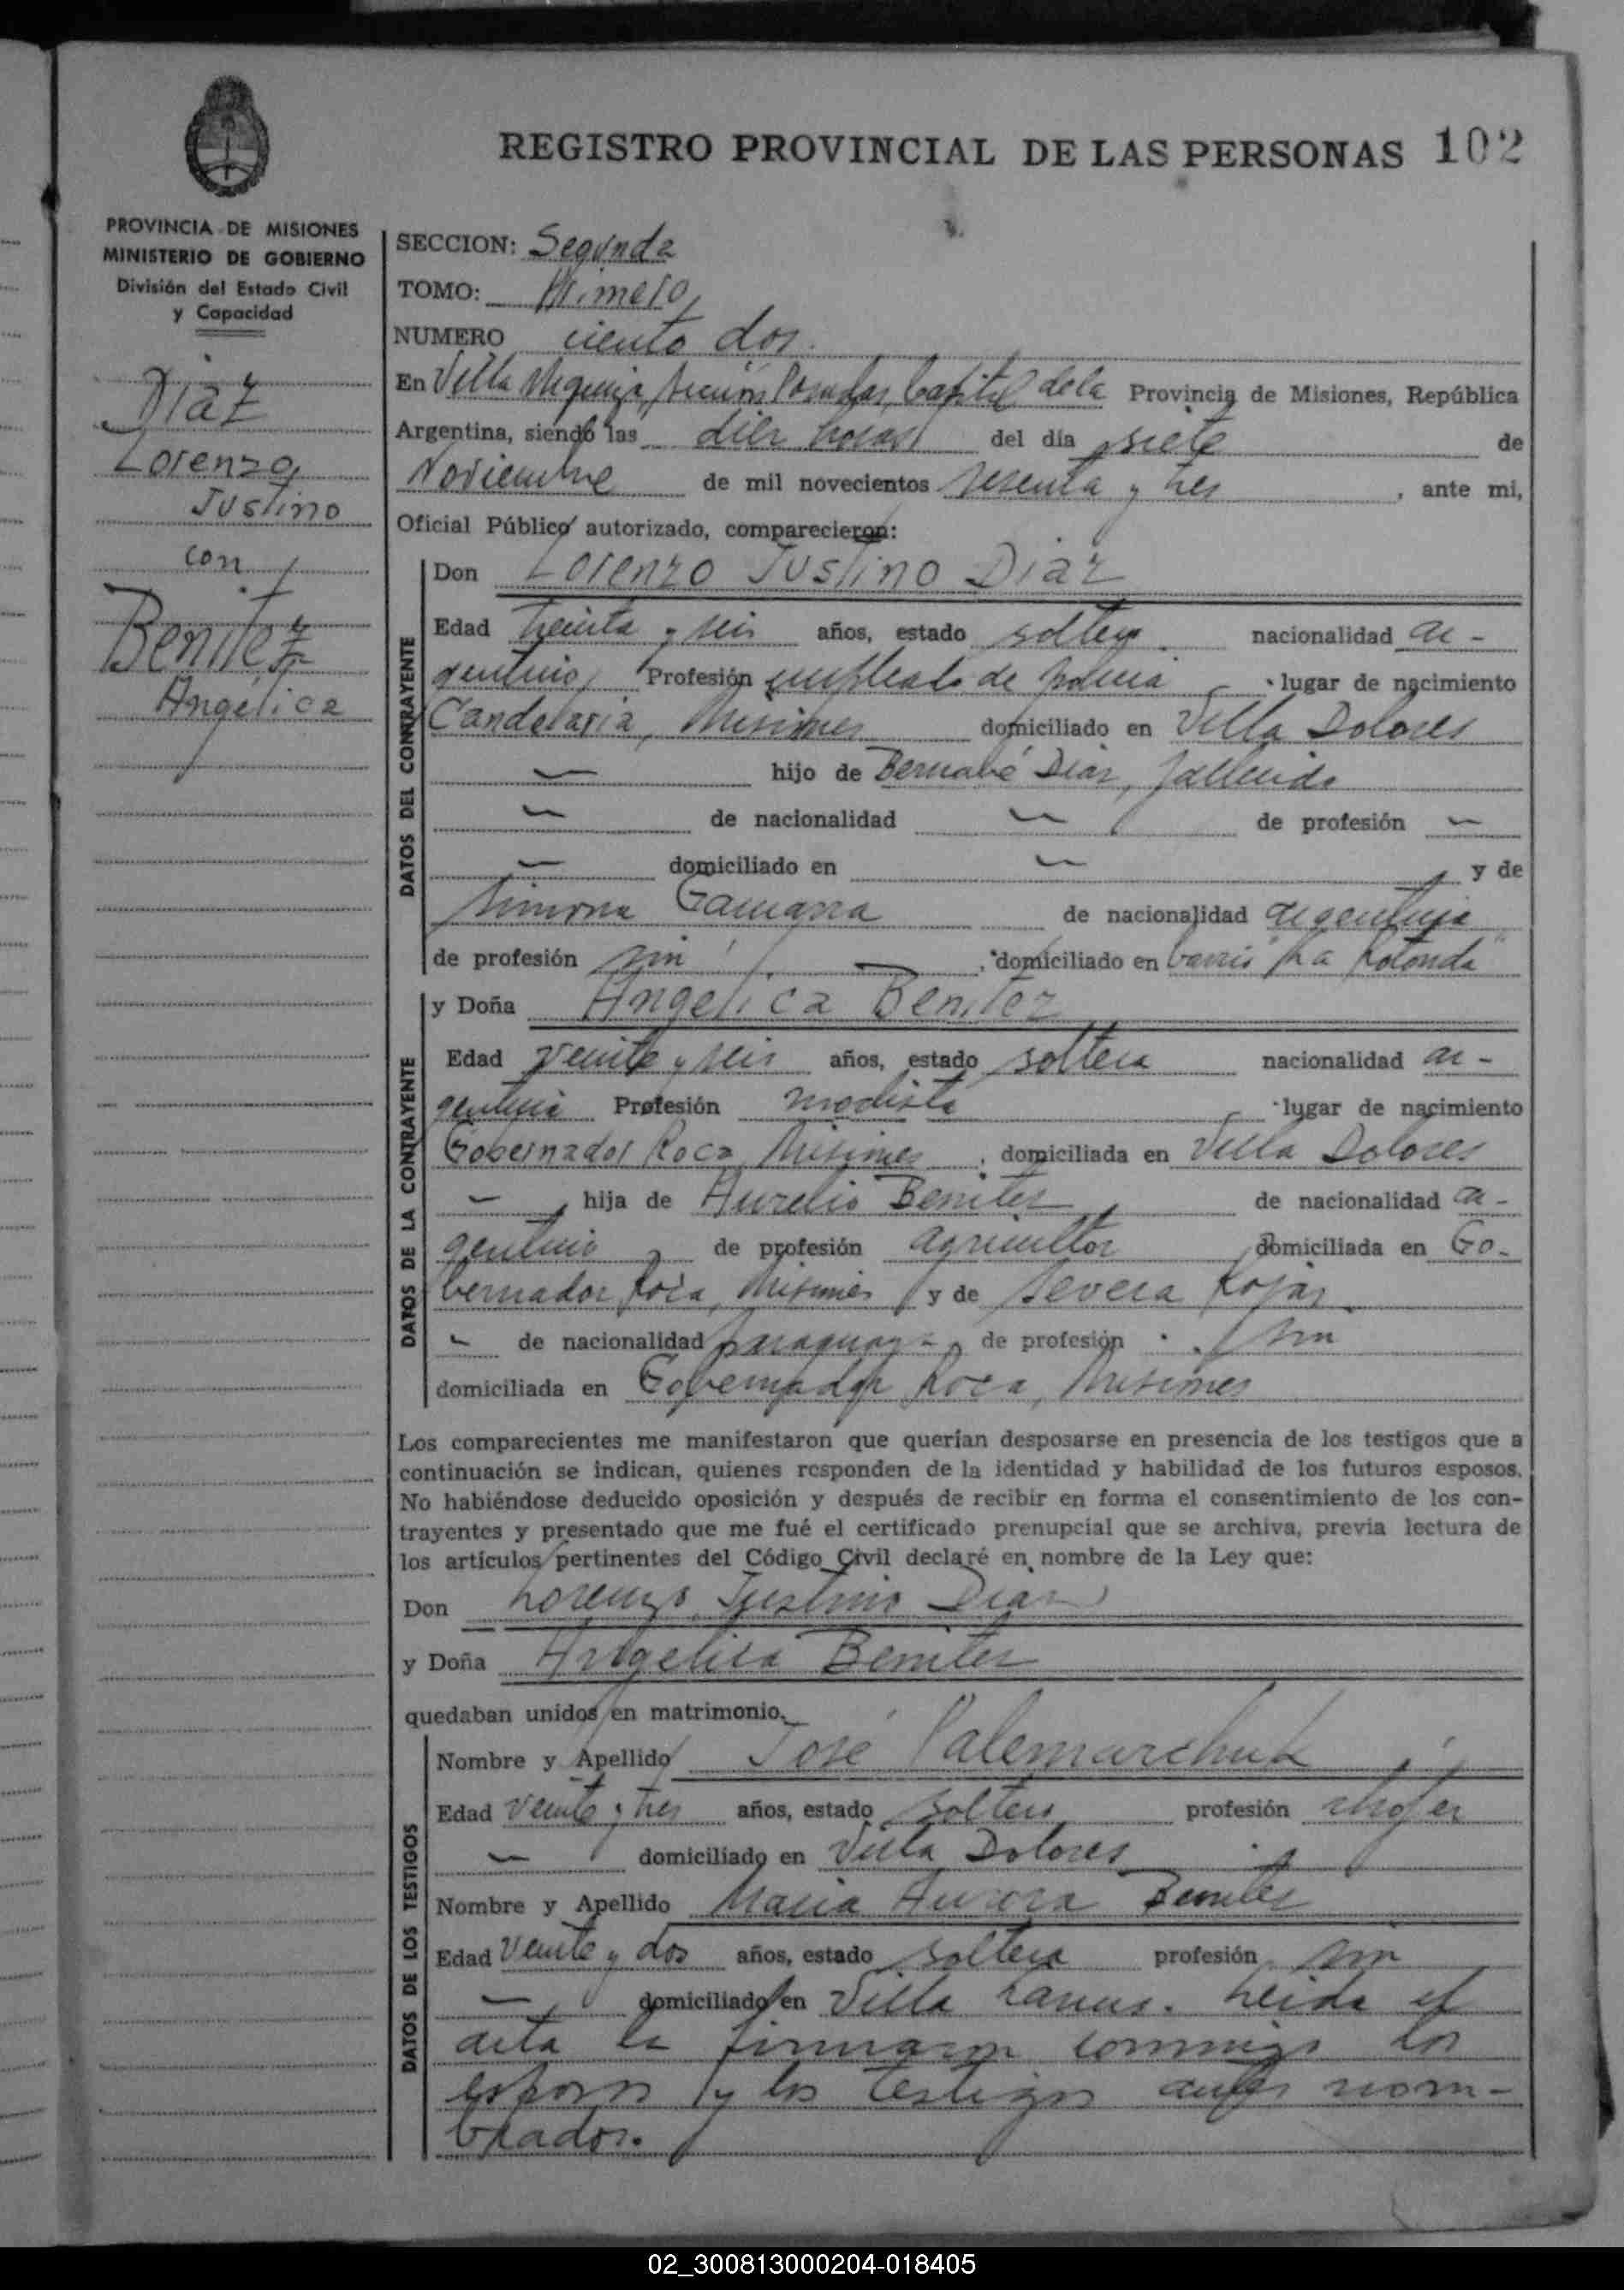 REGISTRO PROVINCIAL DE LAS PERSONAS 102
PROVINCIA DE MISIONES
MINISTERIO DE GOBIERNO
División del Estado Civil
y Capacidad
Diaz
Lorenzo
Justino
con
Benitez
Angélica
SECCION: Segunda
TOMO: Primero
NUMERO ciento dos.
En Villa Posadas, Capital de la Provincia de Misiones, República
Argentina, siendo las diez horas del día siete de
Noviembre de mil novecientos sesenta y tres, ante mi,
Oficial Público autorizado, comparecieron:
DATOS DEL CONTRAYENTE
Don Lorenzo Justino Diaz
Edad treinta y seis años, estado soltero nacionalidad ar-
gentino, Profesión empleado de policia lugar de nacimiento
Candelaria, Misiones domiciliado en Villa Dolores
— hijo de Bernabé Diaz, fallecido
— de nacionalidad — de profesión —
— domiciliado en — y de
Simona Gamarra de nacionalidad argentina
de profesión sin —, domiciliado en barrio "La Rotonda"
DATOS DE LA CONTRAYENTE
y Doña Angelica Benitez
Edad veinte y seis años, estado soltera nacionalidad ar-
gentina Profesión modista lugar de nacimiento
Gobernador Roca, Misiones, domiciliada en Villa Dolores
— hija de Aurelio Benitez, de nacionalidad ar-
gentino, de profesión agricultor, domiciliada en Go-
bernador Roca, Misiones y de Severa Rojas
— de nacionalidad paraguaya, de profesión sin
domiciliada en Gobernador Roca, Misiones
Los comparecientes me manifestaron que querían desposarse en presencia de los testigos que a
continuación se indican, quienes responden de la identidad y habilidad de los futuros esposos.
No habiéndose deducido oposición y después de recibir en forma el consentimiento de los con-
trayentes y presentado que me fué el certificado prenupcial que se archiva, previa lectura de
los artículos pertinentes del Código Civil declaré en nombre de la Ley que:
Don Lorenzo Justino Diaz
y Doña Angelica Benitez
quedaban unidos en matrimonio.
DATOS DE LOS TESTIGOS
Nombre y Apellido José Palemarchuk
Edad veinte y tres años, estado soltero profesión chofer
— domiciliado en Villa Dolores
Nombre y Apellido Maria Aurora Benitez
Edad veinte y dos años, estado soltera profesión sin
— domiciliado en Villa Lanus. Leida el
acta la firmaron conmigo los
esposos y los testigos antes nom-
brados.
02_300813000204-018405